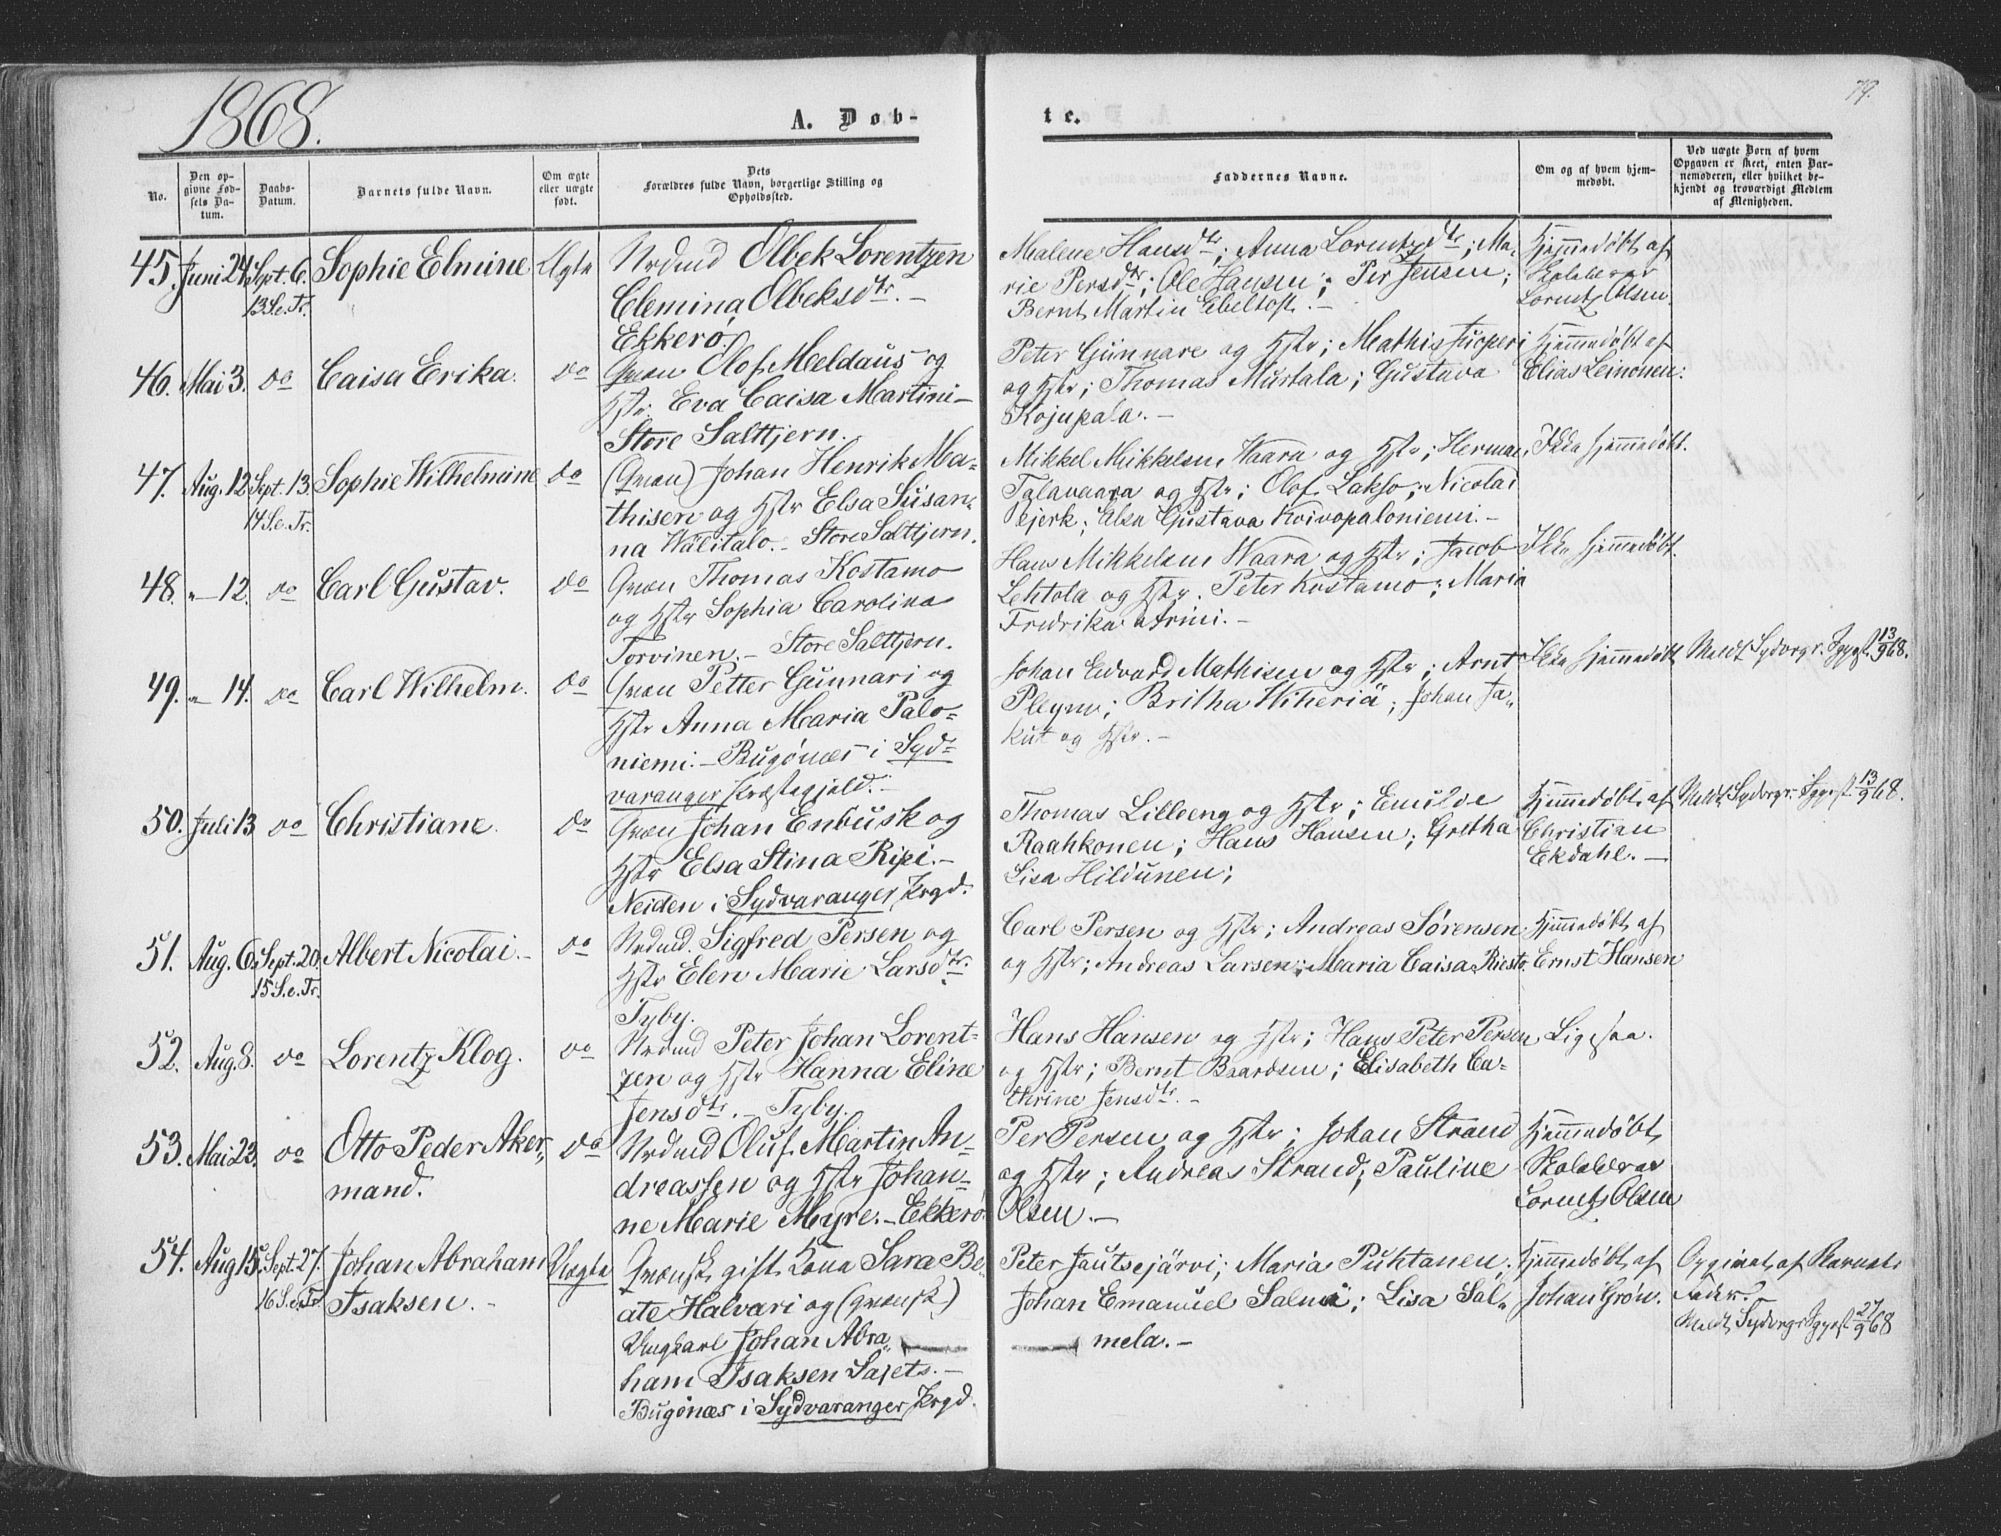 1868.
A. Døb-
te.
79.
No.
Den op-
givne Fød-
sels Da-
tum.
Daabs-
Datum.
Barnets fulde Navn.
Om ægte
eller uægte
født.
Dets
Forældres fulde Navn, borgerlige Stilling og
Opholdssted.
Faddernes Navne.
Om og af hvem hjem-
medøbt.
Ved uægte Børn af hvem
Opgaven er skeet, enten Bar-
nemoderen, eller hvilket be-
kjendt og troværdigt Medlem
af Menigheden.
45. Juni 24. Sept. 6. Sophie Elmine Ægte Nrdmd Olbek Lorentzen
13 S.e.Tr. Clemina Olbeksdtr. –
Ekkerø.
Malene Hansdtr; Anna Lorentzdtr; Ma-
rie Persdtr; Ole Hansen; Per Jensen;
Bernt Martin Ebeltoft. –
Hjemmedøbt af
Skolelærer
Lorentz Olsen.
46. Mai 3. do Caisa Erika. do Qvæn Olof Meldaus og
Hstr. Eva Caisa Martini –
Store Salttjern.
Peter Gunnare og Hstr; Mathis
og Hstr; Thomas Murtala; Gustava
Kojupala. –
Hjemmedøbt af
Elias Leinonen.
47. Aug. 12. Sept. 13. Sophie Wilhelmine do (Qvæn) Johan Henrik Ma-
14 S.e.Tr. thisen og Hstr Elsa Susan-
na Wälitalo. – Store Salttjern.
Mikkel Mikkelsen Waara og Hstr; Herman
Talavaara og Hstr; Olof Lakso; Nicolai
Pejerk; Elsa Gustava Koivopaloniemi. –
Ikke hjemmedøbt.
48. " – 12. do Carl Gustav. do Qvæn Thomas Kostamo
og Hstr Sophia Carolina
Torvinen. – Store Salttjern.
Hans Mikkelsen Waara og Hstr; Jacob
Lehtola og Hstr. Peter Kostamo; Maria
Fredrika Arini. –
Ikke hjemmedøbt.
49. " – 14. do Carl Wilhelm. do Qvæn Petter Gunnari og
Hstr Anna Maria Palo-
niemi. – Bugønæs i Syd-
varanger Præstegjeld. –
Johan Edvard Mathisen og Hstr; Arnt
Pleym; Britha Wiheriä; Johan Ja-
kut og Hstr. –
Ikke hjemmedøbt
Meldt Sydvgr. Sgpst 13/9 68.
50. Juli 13 do Christiane. do Qvæn Johan Enbusk og
Hstr Elsa Stina Ripi. –
Neiden i Sydvaranger Prgd.
Thomas Lilleeng og Hstr; Emilde
Raahkonen; Hans Hansen; Gretha
Lisa Hildunen;
Hjemmedøbt af
Christian
Ekdahl. –
Meldt Sydvgr. Sgpst 13/9 68.
51. Aug. 6. Sept. 20. Albert Nicolai. – do Nrdmd. Sigfred Persen og
15 S.e.Tr. Hstr Elen Marie Larsdtr.
Tyby.
Carl Persen og Hstr; Andreas Sørensen
og Hstr; Andreas Larsen; Maria Caisa Riesto.
Hjemmedøbt af
Ernst Hansen
52. Aug 8. do Lorentz Klog. do Nrdmd Peter Johan Lorent-
zen og Hstr Hanna Eline
Jensdtr. – Tyby.
Hans Hansen og Hstr; Hans Peter Persen
og Hstr; Bernt Baardsen; Elisabeth Ca-
thrine Jensdtr. –
Ligesaa.
53. Mai 23. do Otto Peder Aker- do Nrdmd Oluf Martin An-
mand. dreassen og Hstr Johan-
ne Marie Myre. – Ekkerø
Per Persen og Hstr; Johan Strand
og Hstr; Andreas Strand; Pauline
Olsen. –
Hjemmedøbt
Skolelærer
Lorentz Olsen
54. Aug 15. Sept. 27. Johan Abraham Uægte Qvænsk gift Kone Sara Be-
16 S.e.Tr. Isaksen. – ate Halvari og (qvænsk)
Ungkarl Johan Abra-
ham Isaksen Sajets. –
Bugønæs i Sydvaranger Prgd.
Peter Jautsejärvi; Maria Puhtanen,
Johan Emanuel Salmi; Lisa Sal-
mela. –
Hjemmedøbt af
Johan Grøn.
Opgivet af Barnets
Fader. –
Meldt Sydvgr Sgpst 27/9 68